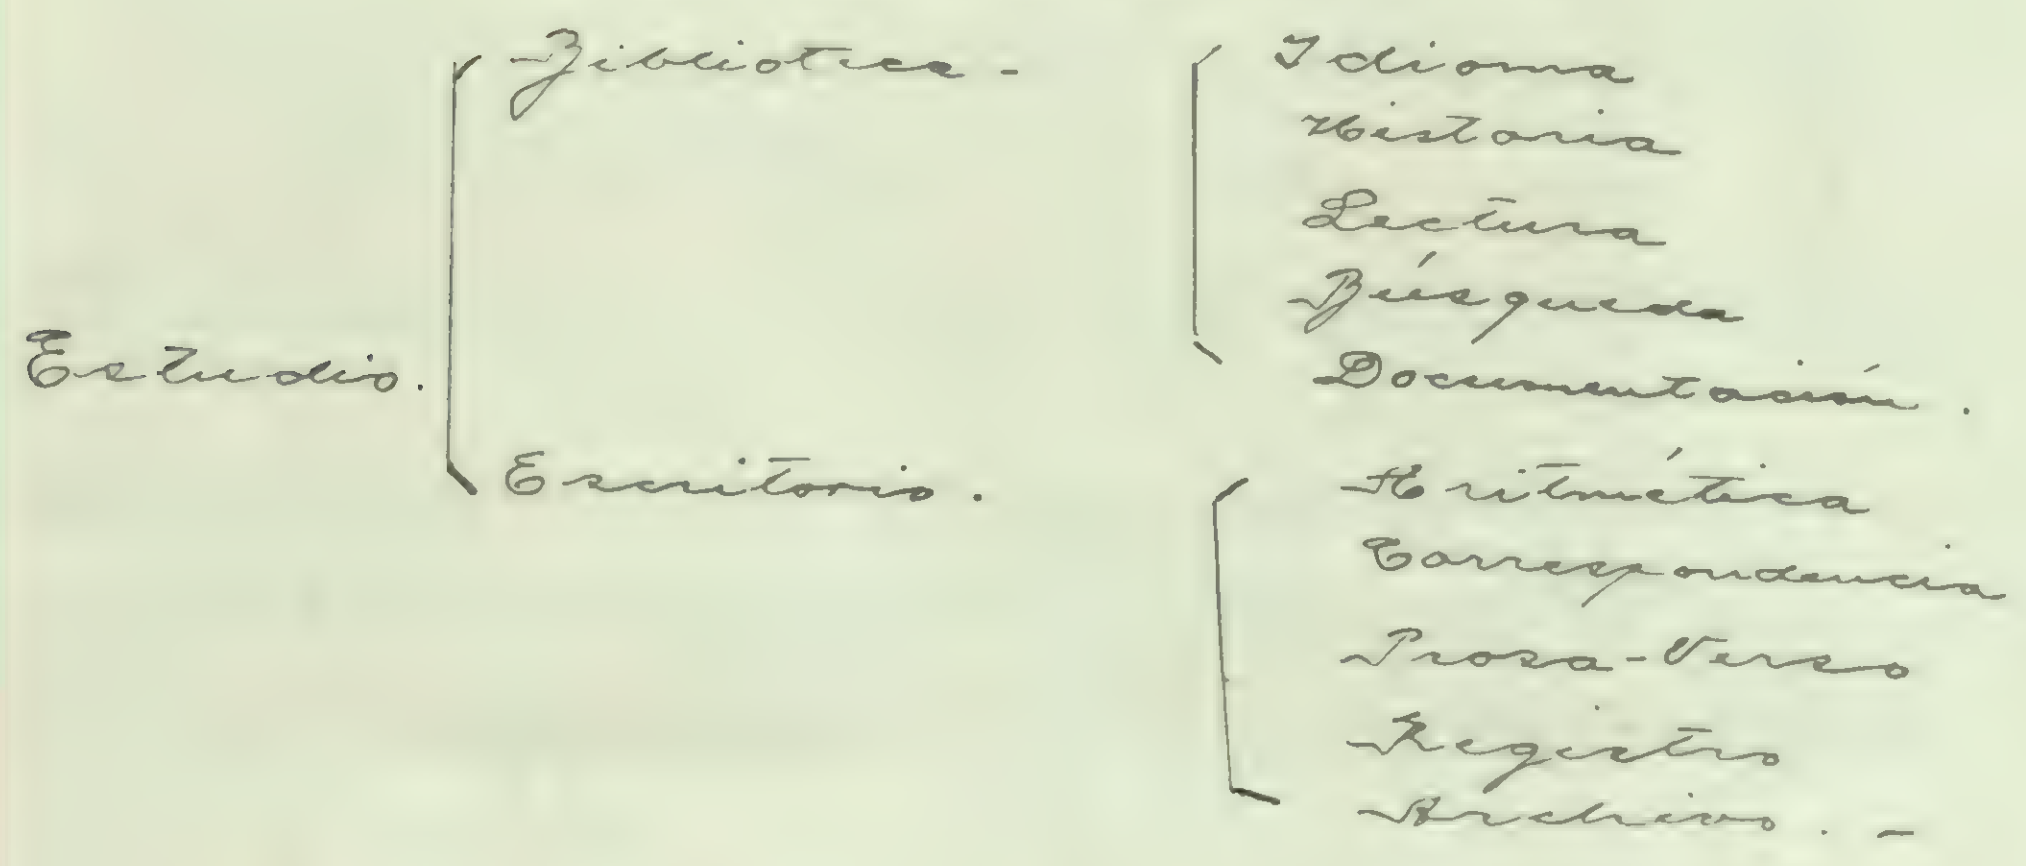 Estudio.
Biblioteca -
Idioma
Historia
Lectura
Búsqueda
Documentación.
Escritorio.
Aritmética
Correspondencia
Prosa-Verso
Registro
Archivo. -